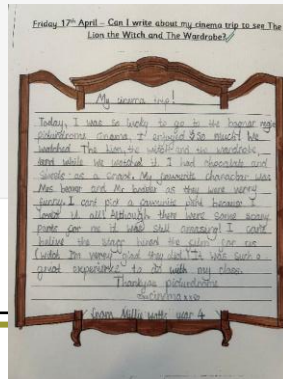 Friday 17th April – Can I write about my cinema trip to see The
Lion the Witch and The Wardrobe?
My cinema trip!
Today, I was so lucky to go to the
picturedrome cinema. I enjoyed it so much! We
watched The Lion, the witch and the wardrobe,
and while we watched it I had chocolate and
sweets as a snack. My favourite character was
Mrs beaver and Mr beaver as they were very
funny. I cant pick a favourite part because I
loved it all! Although there were some scary
parts for me it was still amazing! I cant
belive the hired the film for us
(witch I'm very glad they did). It was such a
great experience to do with my class.
Thankyou picturedrome
cinema xxo
from Milly year 4